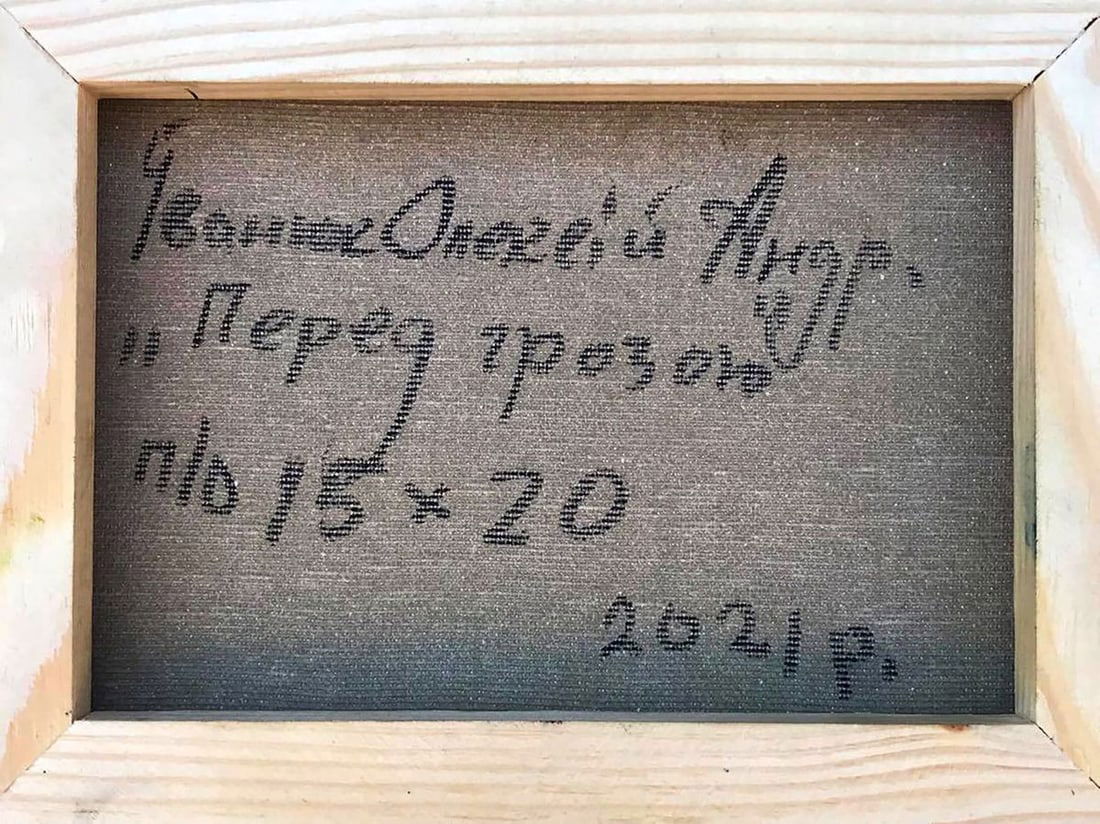 Іванюк Олексій Андр.
„Перед грозою“
п/о 15 × 20
2021 р.